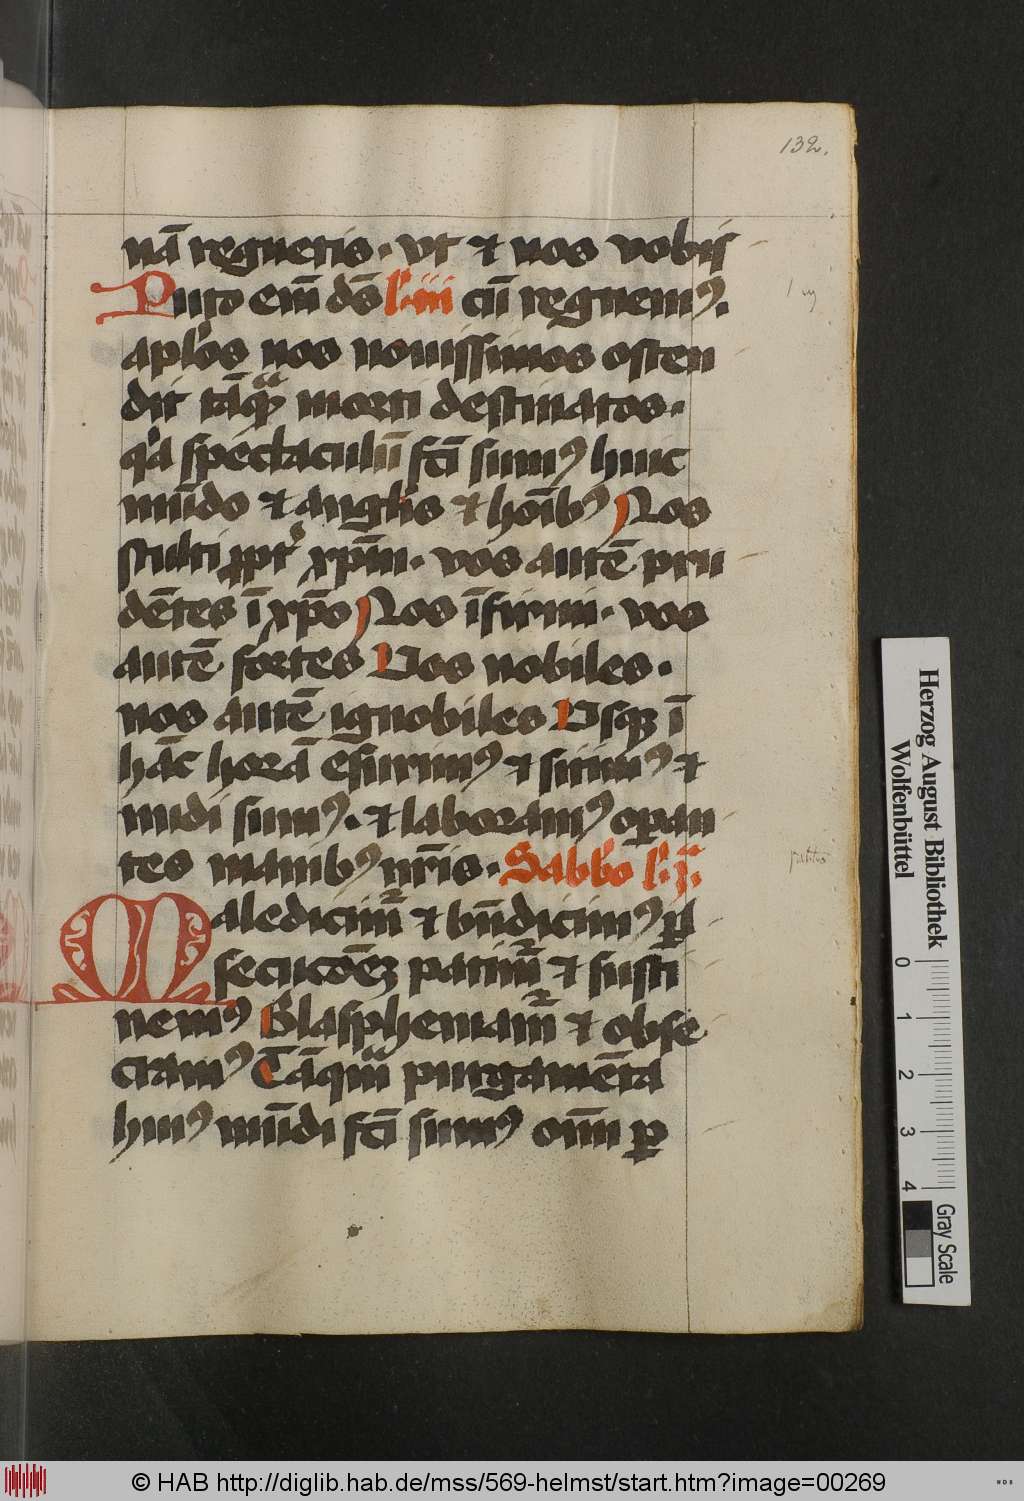 132.
nā regnetis. vt et nos vobis
Puto em̄ ds̄ l'.iii cū regnem9.
apl'os nos nouissimos osten
dit tāqᷓ morti destinatos.
qͥa spectaculū fc̄i sum9 huic
mūdo et angl'is et hoībꝰ Nos
stulti ꝓpt' xp̄m. vos autē pru
dētes ī xp̄o Nos īfirmi. vos
autē fortes Vos nobiles.
nos autē ignobiles Vsqꝫ ī
hāc horā esurim9 et sitim9 et
nudi sum9. et laboram9 oꝑan
tes manibꝰ nr̄is. Sabb'o l'.j.
Maledicim᷑ et bn̄dicim9 ꝑ
secucōeꝫ patim᷑ et susti
nem9 Blasphemam᷑ et obse
cram9 Tāqᷓ purgamēta
hui9 mūdi fc̄i sum9 om̄i ꝑ
Herzog August Bibliothek
Wolfenbüttel
0
1
2
3
4
Gray Scale
© HAB http://diglib.hab.de/mss/569-helmst/start.htm?image=00269